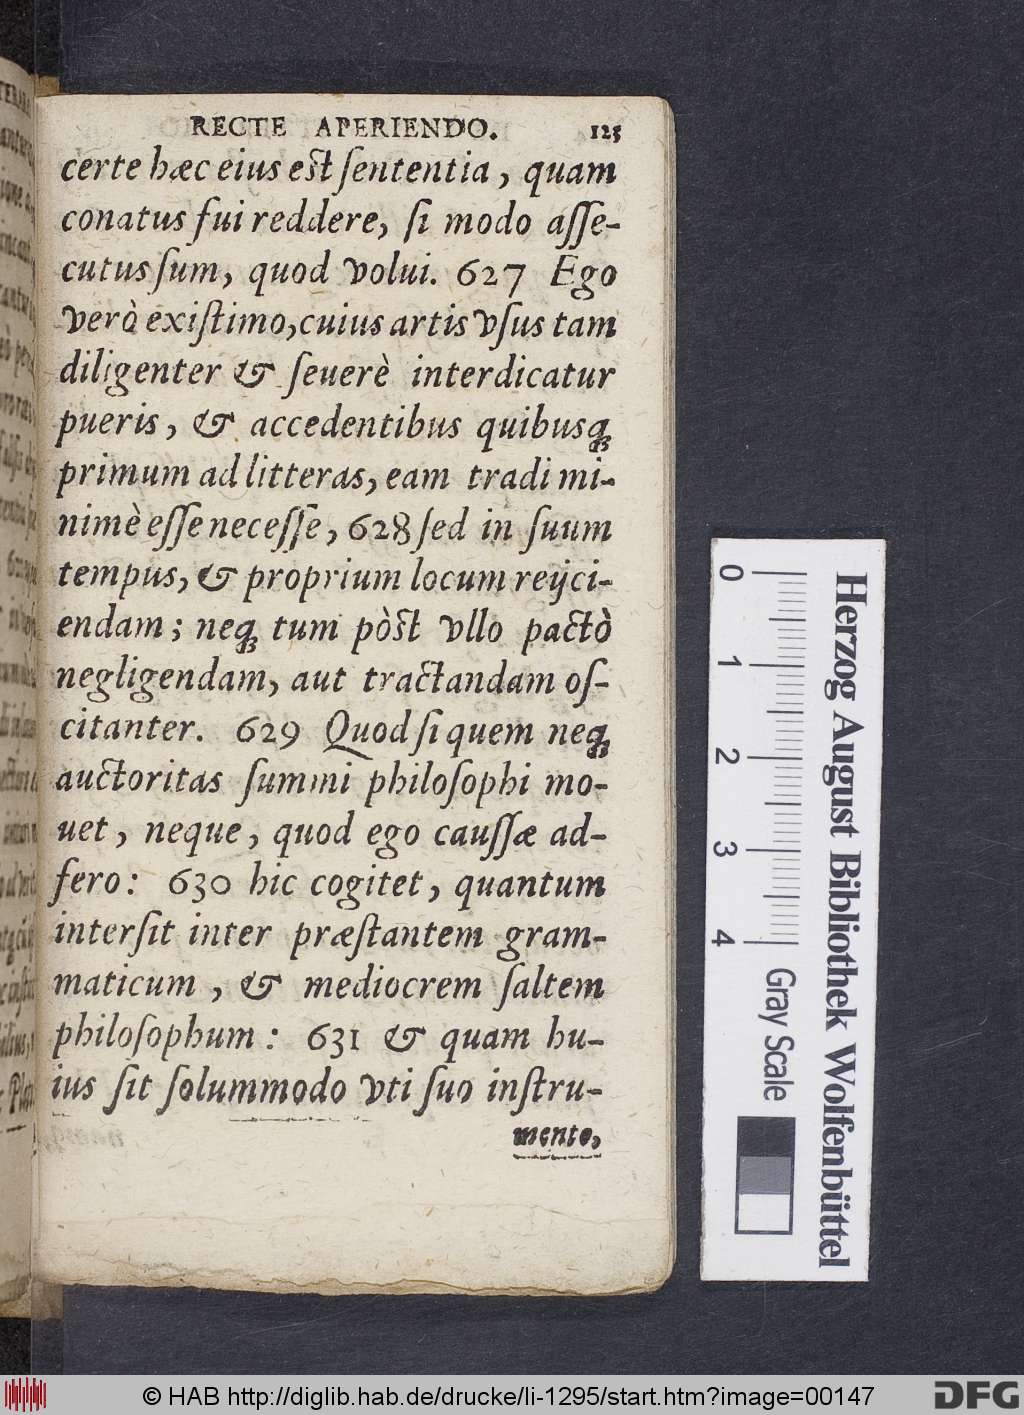 RECTE APERIENDO. 125
certe hæc eius est ſententia, quam
conatus fui reddere, ſi modo aſſe-
cutus ſum, quod volui. 627 Ego
verò exiſtimo, cuius artis vſus tam
diligenter & ſeuerè interdicatur
pueris, & accedentibus quibusq́;
primum ad litteras, eam tradi mi-
nimè eſſe neceſſe, 628 ſed in ſuum
tempus, & proprium locum reijci-
endam; neq́; tum pòst vllo pactò
negligendam, aut tractandam oſ-
citanter. 629 Quod ſi quem neq́;
auctoritas ſummi philoſophi mo-
uet, neque, quod ego cauſſæ ad-
fero: 630 hic cogitet, quantum
interſit inter præſtantem gram-
maticum, & mediocrem ſaltem
philoſophum: 631 & quam hu-
ius ſit ſolummodo vti ſuo inſtru-
mento,
0 1 2 3 4
Gray Scale
Herzog August Bibliothek Wolfenbüttel
© HAB http://diglib.hab.de/drucke/li-1295/start.htm?image=00147
DFG